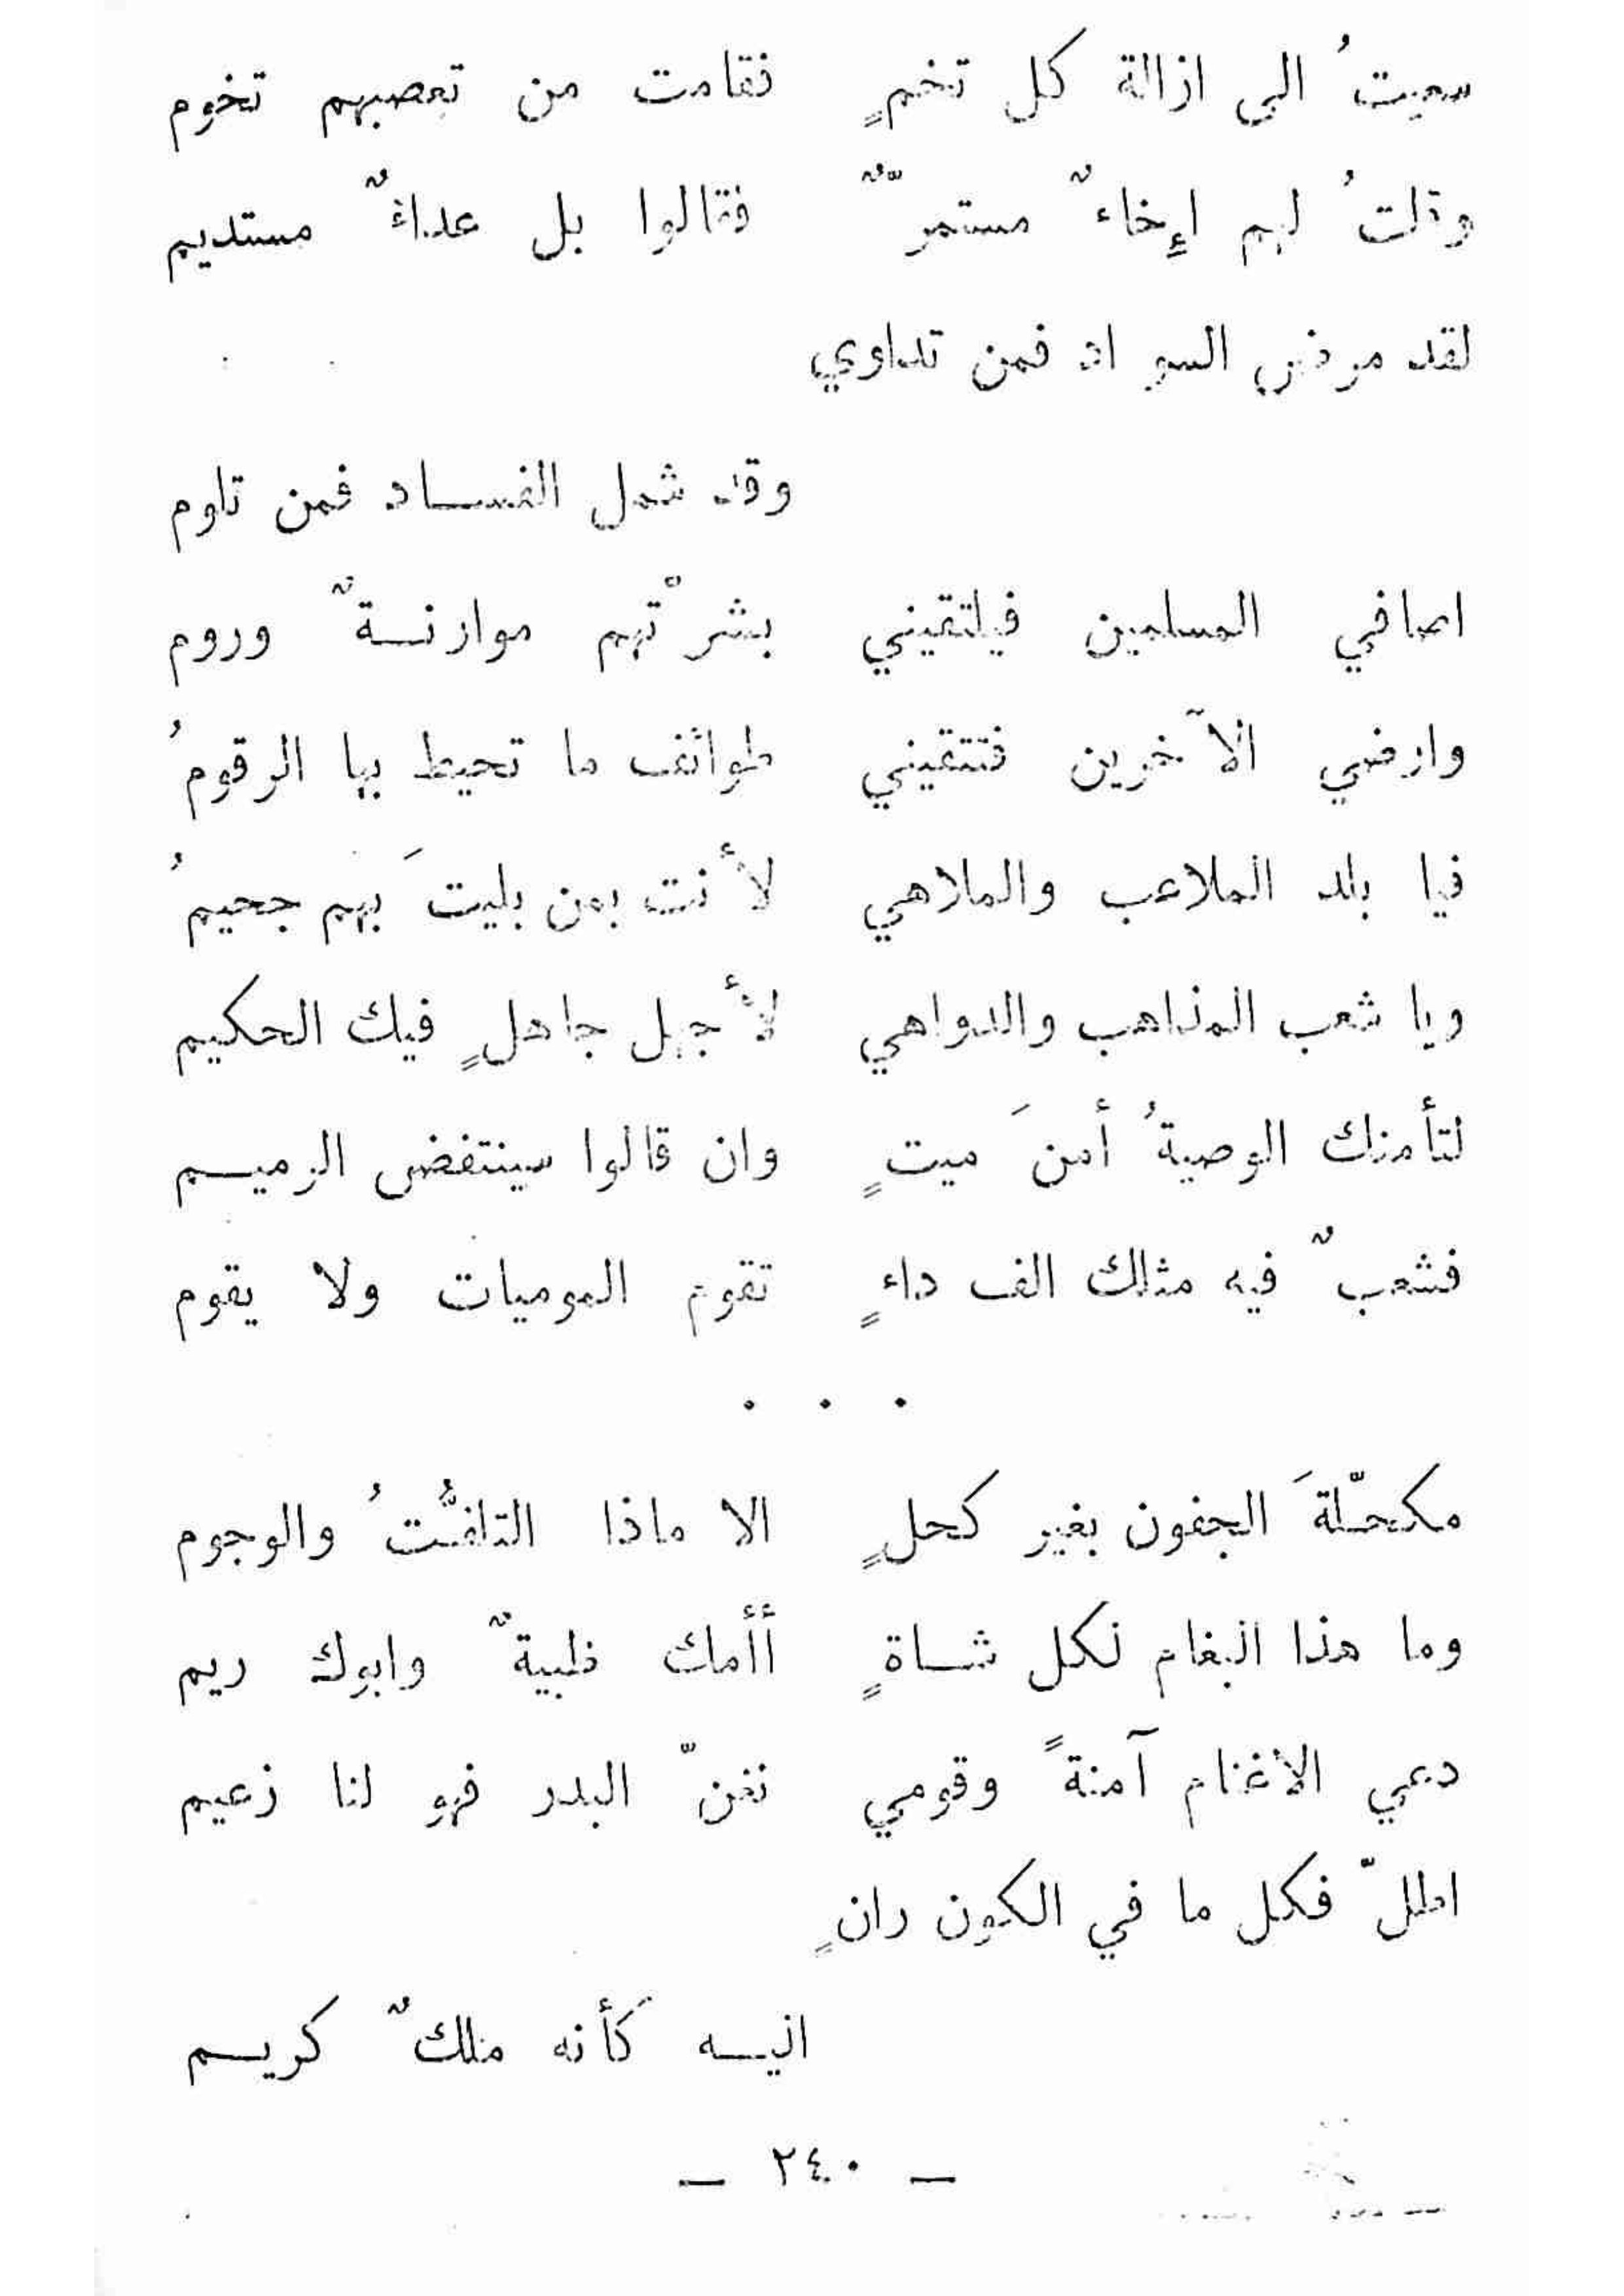 سعيتُ الى ازالة كل تخمٍ فقامت من تعصبهم تخوم
وقلتُ لهم إِخاءٌ مستمرٌّ فقالوا بل عداءٌ مستديم
لقد مرض السواد فمن تداوي
وقد شمل الفساد فمن تلوم
اصافي المسلمين فيلتقيني بشرْتهم موارنةٌ وروم
وارضي الآخرين فتتقيني طوائف ما تحيط بها الرقومُ
فيا بلد الملاعب والملاهي لأنت بمن بليتَ بهم جحيمُ
ويا شعب المذاهب والدواهي لأجهل جاهلٍ فيك الحكيم
لتأمنك الوصيةُ أمنَ ميتٍ وان قالوا سينتفض الرميم
فشعبٌ فيه مثلك الف داءٍ تقوم الموميات ولا يقوم
. . .
مكحّلةَ الجفون بغير كحلٍ الا ماذا التلفُّتُ والوجوم
وما هذا البغام لكل شاةٍ أأمك ظبيةٌ وابوك ريم
دعي الاغنام آمنةً وقومي نغنّ البدر فهو لنا زعيم
اطلّ فكل ما في الكون رانٍ
اليه كأنه ملكٌ كريم
— ٢٤٠ —